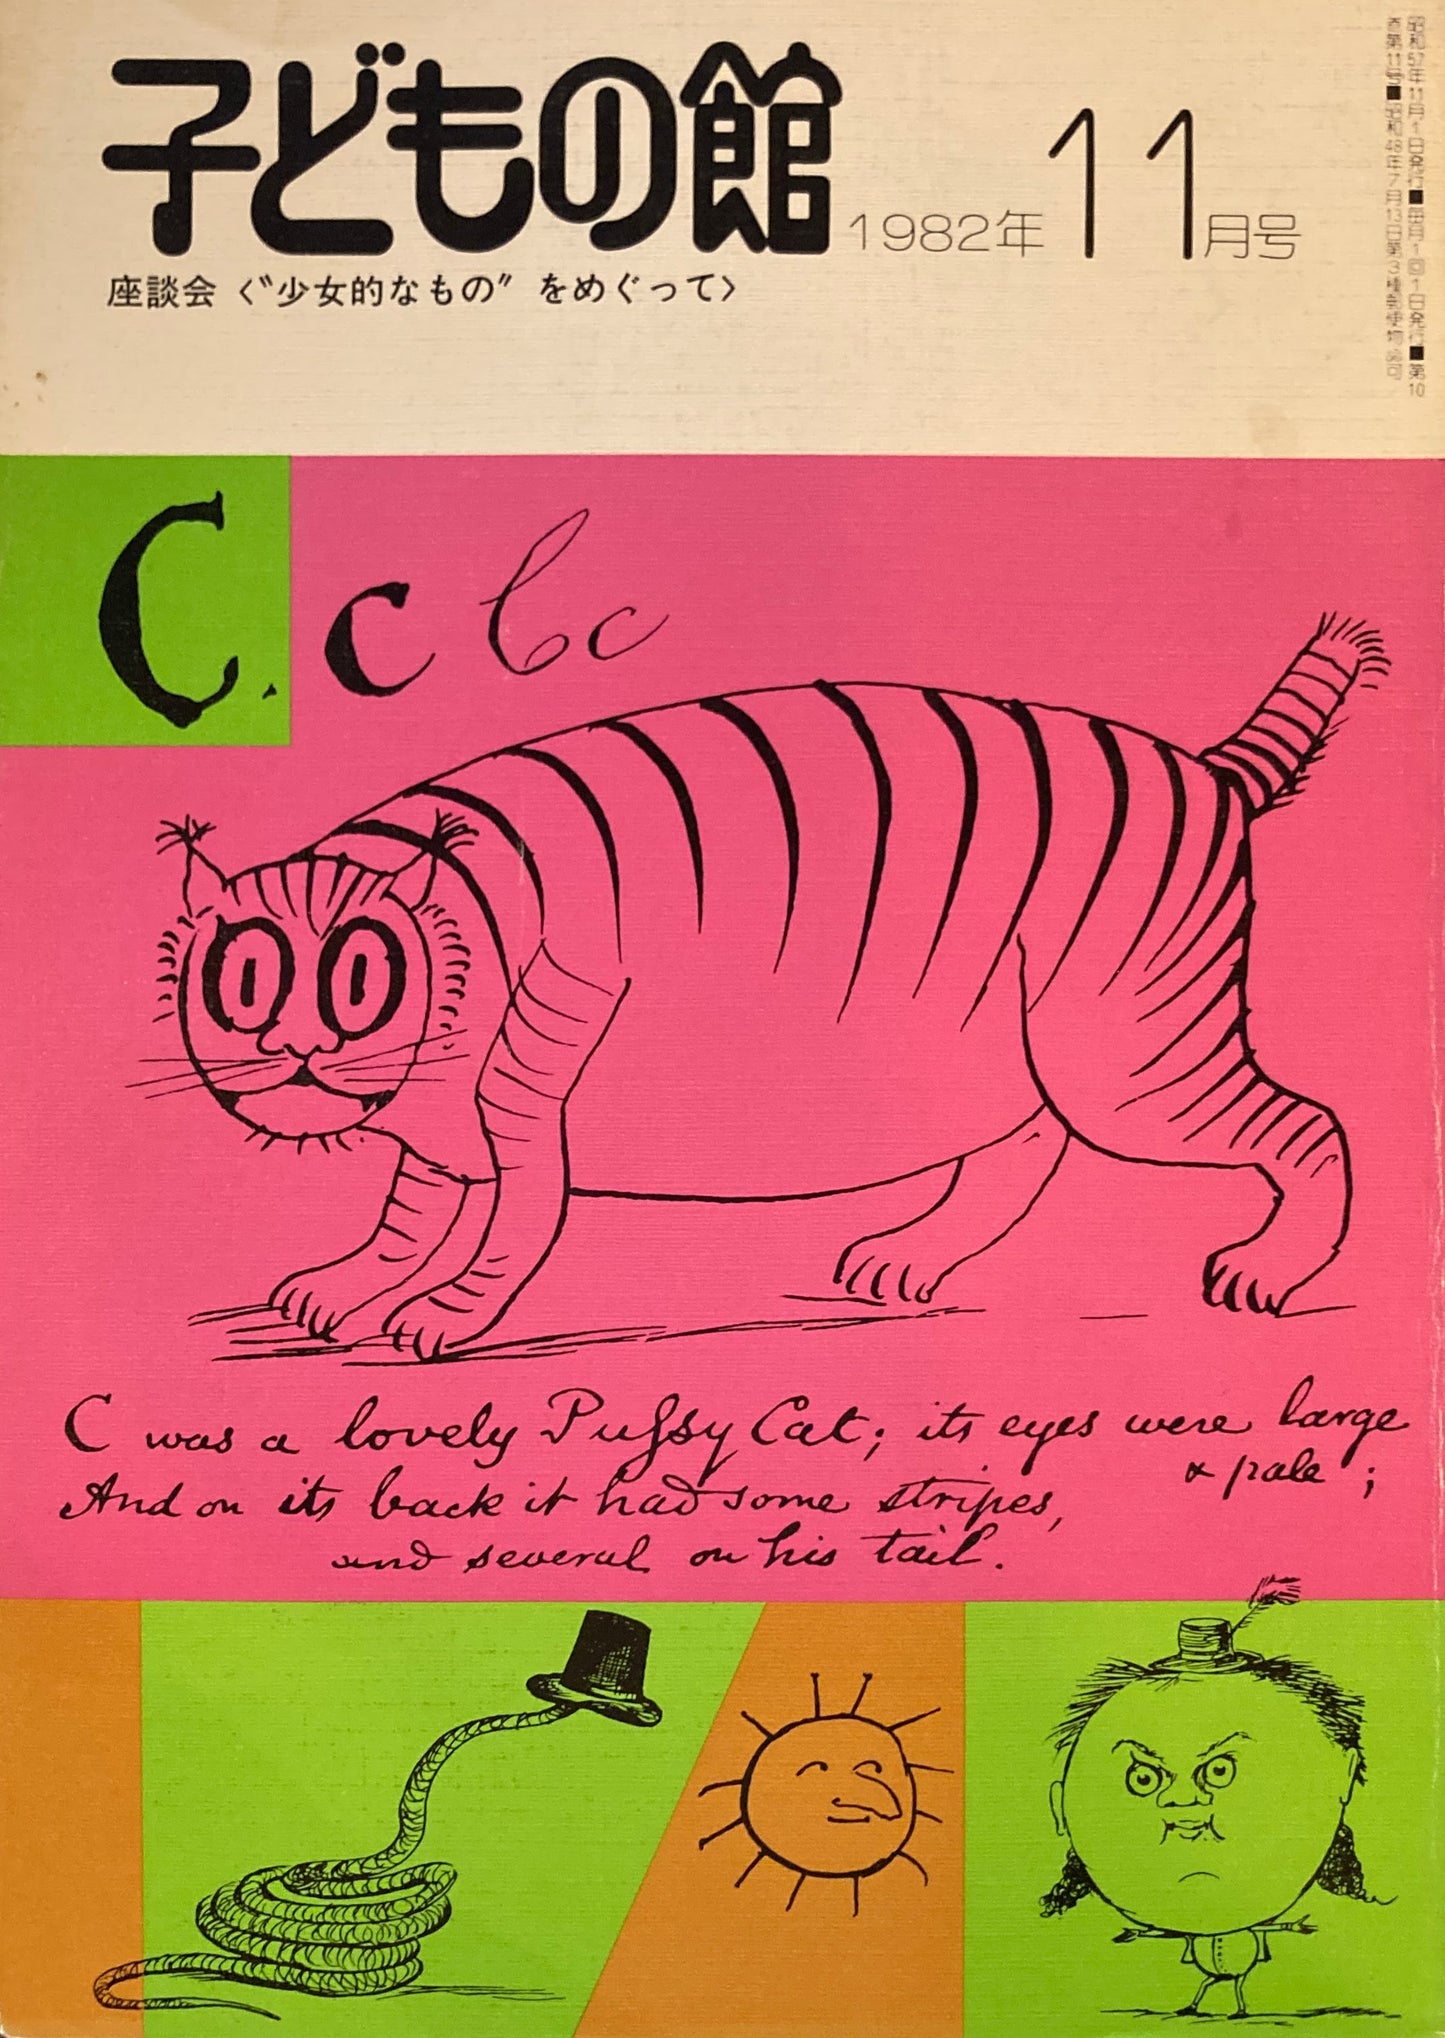 子どもの館 1982年11月号
座談会〈〝少女的なもの〟をめぐって〉
昭和57年11月1日発行■毎月1回1日発行■第10
巻第11号■昭和48年7月13日第3種郵便物認可
C. c C c
C was a lovely Pussy Cat; its eyes were large
& pale ;
And on its back it had some stripes,
and several on his tail.